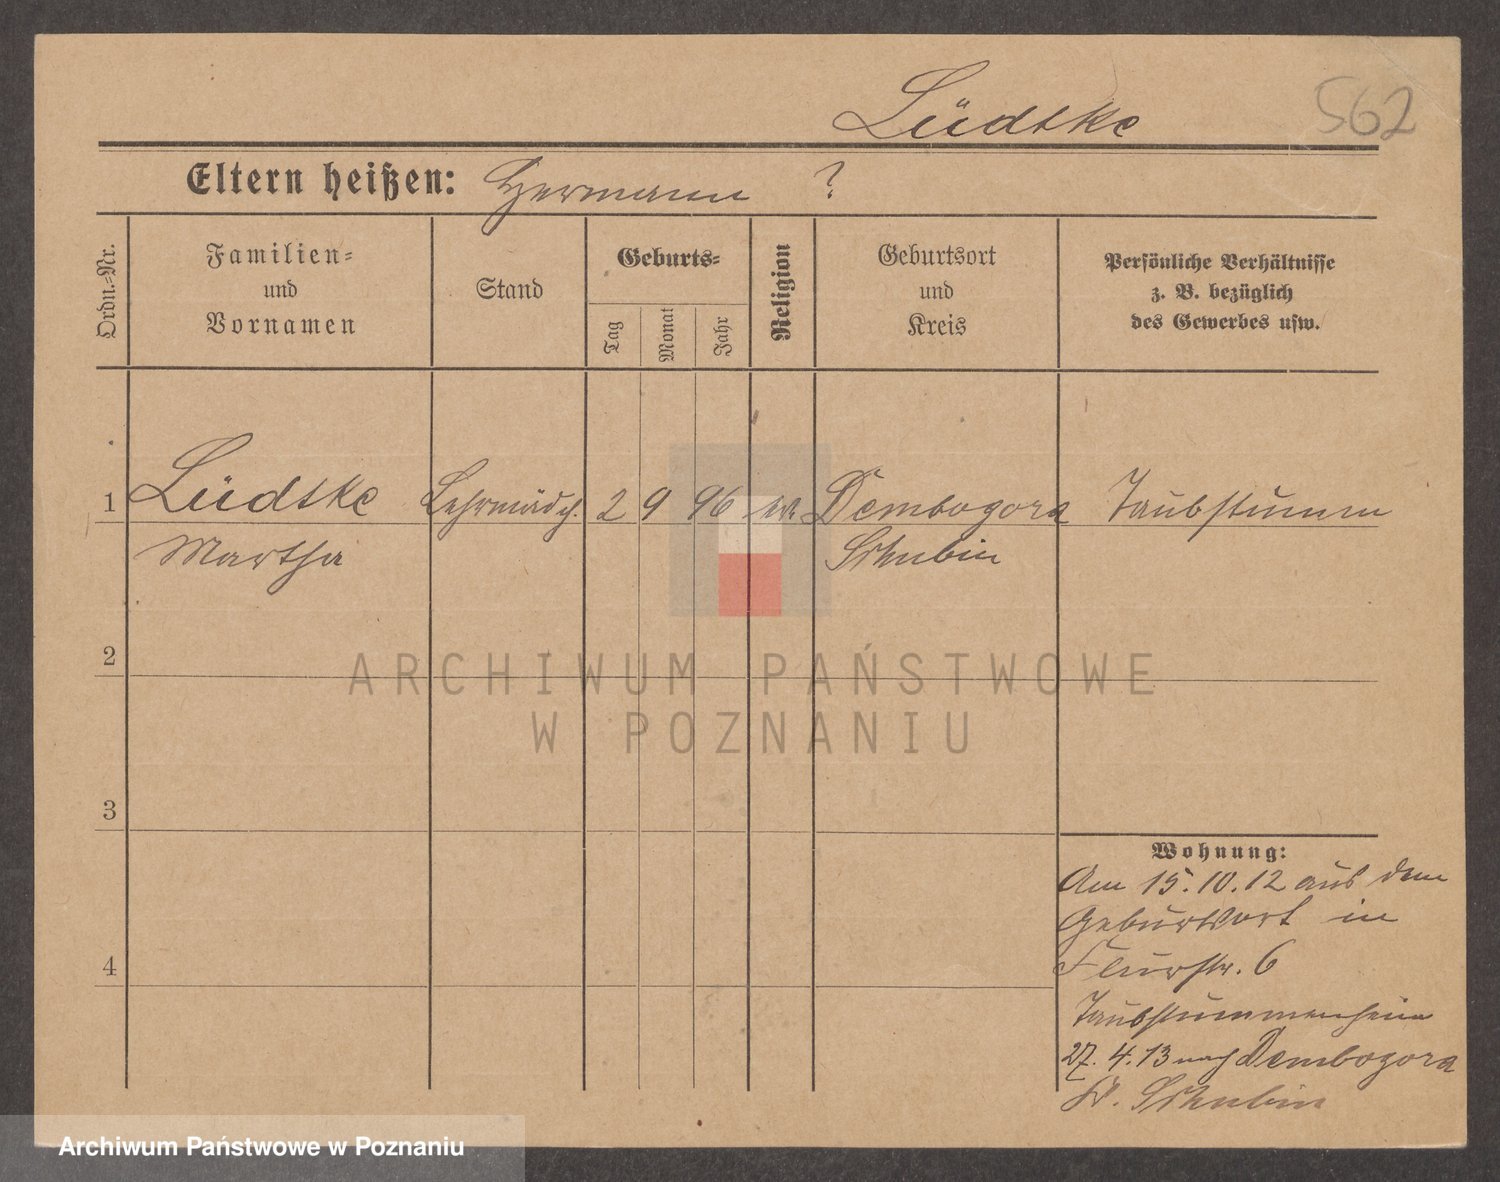 Lüdtke 562
Eltern heißen: Hermann ?
Ordn.-Nr.
Familien-
und
Vornamen
Stand
Geburts-
Tag
Monat
Jahr
Religion
Geburtsort
und
Kreis
Persönliche Verhältnisse
z. B. bezüglich
des Gewerbes usw.
1 Lüdtke Lehrmädch. 2 9 96 ev. Dembogora Taubstumm
Martha Schubin
2
3
4
Wohnung:
Am 15.10.12 aus dem
Geburtsort in
Flurstr. 6
Taubstummenheim
27.4.13 nach Dembogora
Kr. Schubin
ARCHIWUM PAŃSTWOWE
W POZNANIU
Archiwum Państwowe w Poznaniu